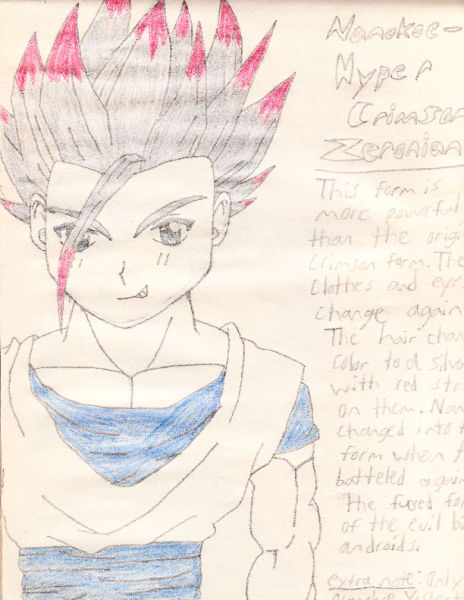 Nanokoe-
Hyper
Crimson
Zeronian
This form is
more powerful
than the origi
crimson form. The
clothes and eye
change again
The hair chan
color to a silve
with red str
on them. Nan
changed into t
form when h
batteled again
the fused for
of the evil bi
androids.
extra note: Only
Nanokoe